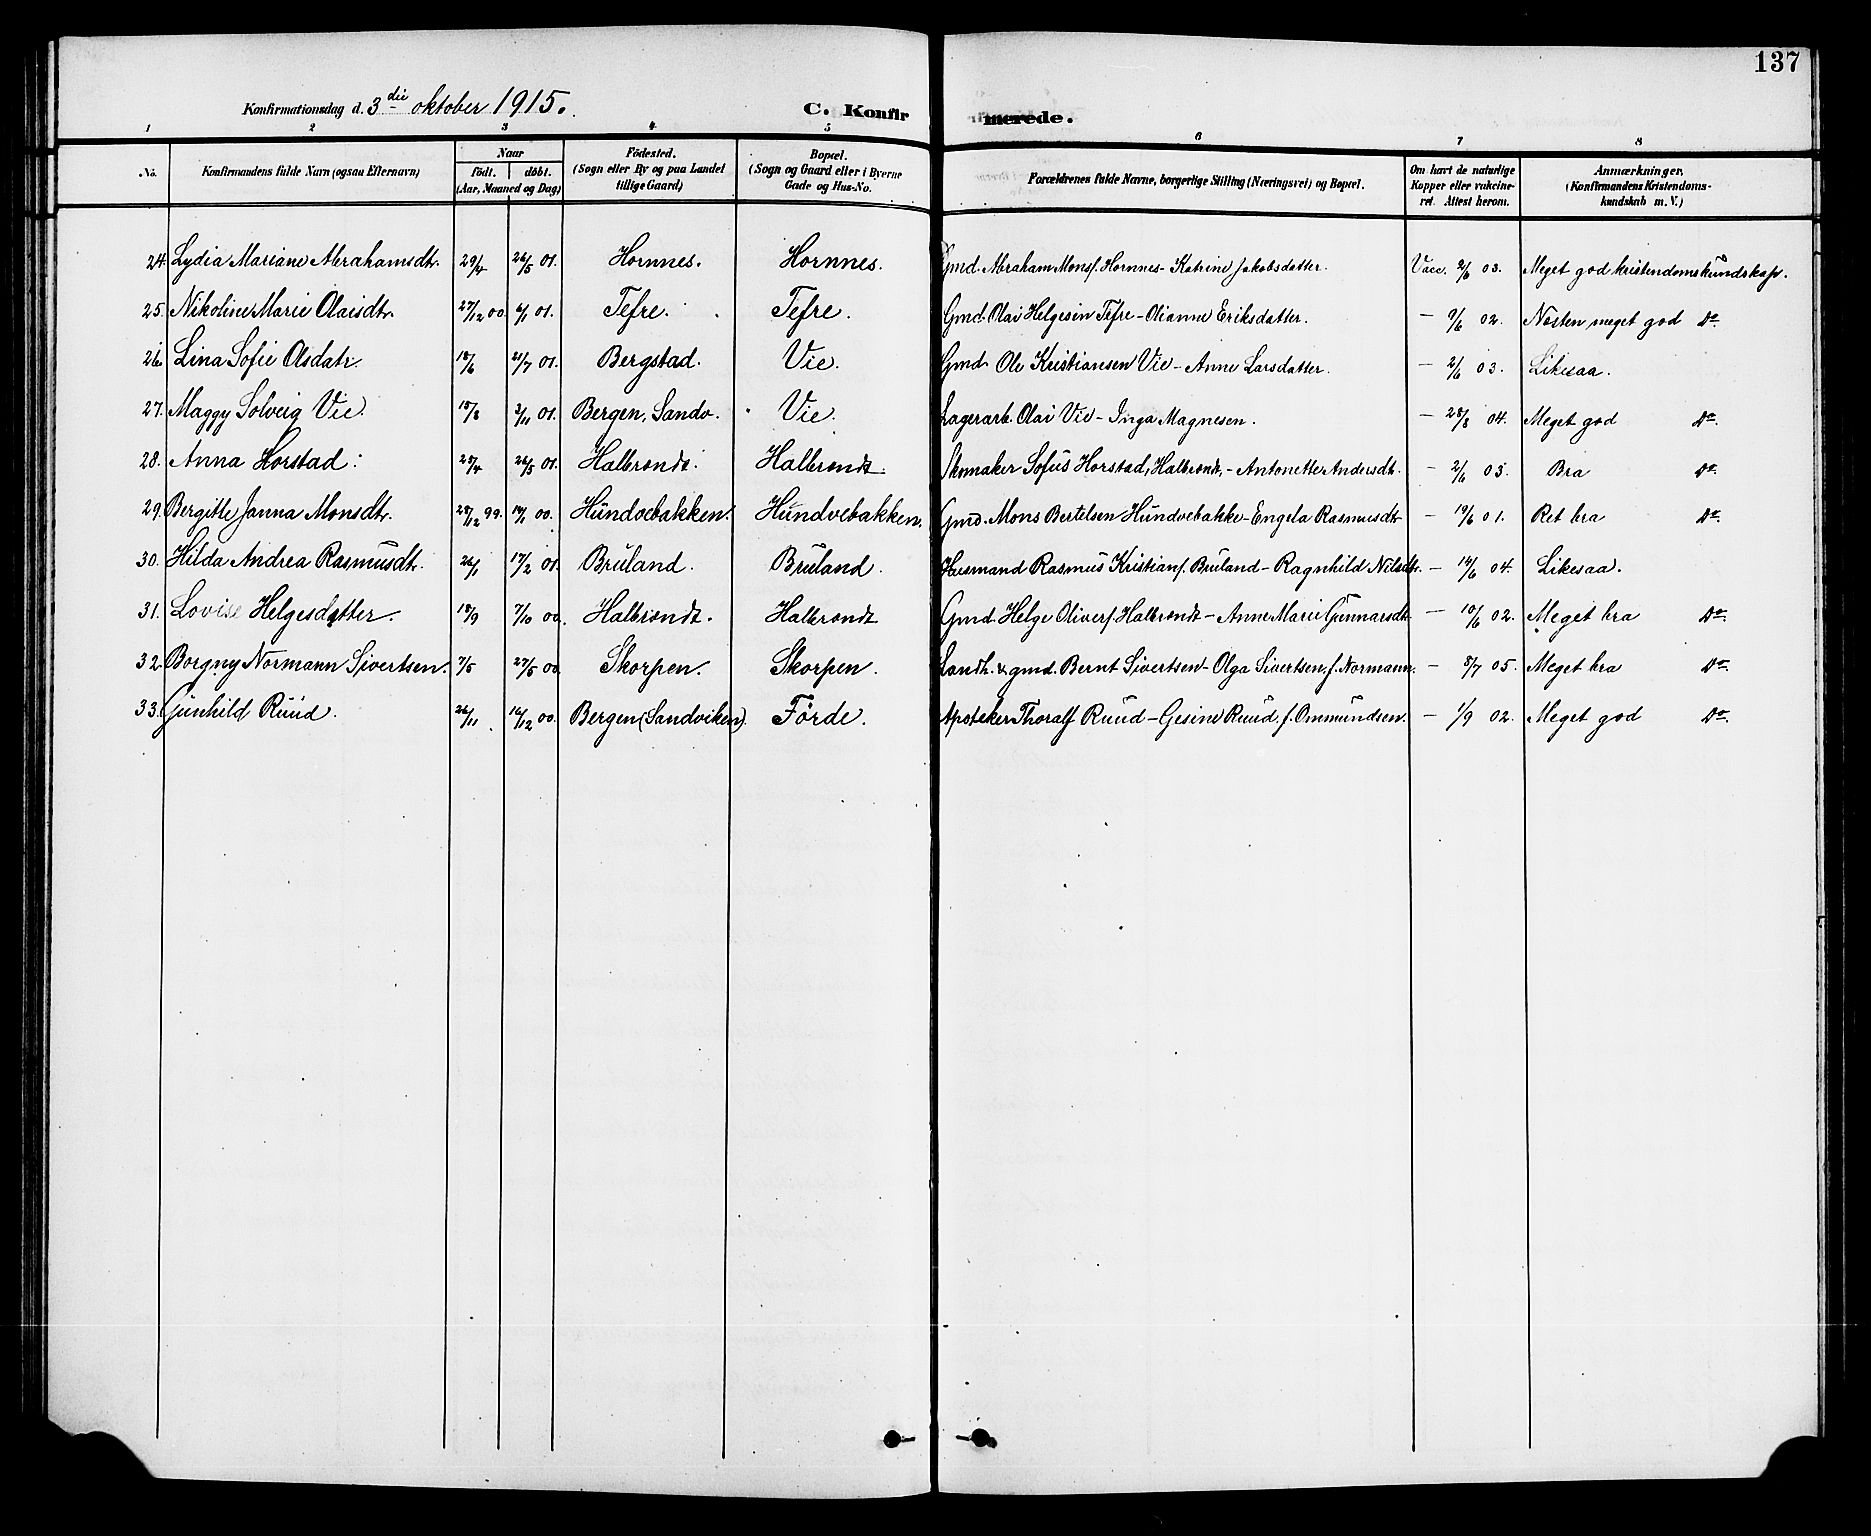 137
Konfirmationsdag d. 3die oktober 1915. C. Konfirmerede.
1 2 3 4 5 6 7 8
No. Konfirmandens fulde Navn (ogsaa Efternavn) Naar födt. döbt. (Aar, Maaned og Dag) Födested. (Sogn eller By og paa Landet tillige Gaard) Bopæl. (Sogn og Gaard eller i Byerne Gade og Hus-No. Forældrenes fulde Navne, borgerlige Stilling (Næringsvei) og Bopæl. Om havt de naturlige Kopper eller vakcineret. Attest herom. Anmærkninger, (Konfirmandens Kristendomskundskab m. V.)
24. Lydia Mariane Abrahamsdtr. 29/4 26/5 01. Hornnes. Hornnes. Gmd. Abraham Monsf. Hornnes - Katrine Jakobsdatter. Vacc. 2/6 03. Meget god kristendomskundskap.
25. Nikoline Marie Olaisdtr. 27/12 00. 6/1 01. Tefre. Tefre. Gmd. Olai Helgesen Tefre - Olianne Eriksdatter. — 9/6 02. Næsten meget god Do.
26. Lina Sofie Olsdatr. 18/6 21/7 01. Bergstad. Vie. Gmd. Ole Kristiansen Vie - Anne Larsdatter. — 2/6 03. Likesaa.
27. Maggy Solveig Vie. 18/8 3/11 01. Bergen, Sandv. Vie. Lagerarb. Olai Vie - Inga Magnesen. — 28/8 04. Meget god Do.
28. Anna Horstad. 28/4 26/5 01. Halbrendt. Halbrendt. Skomaker Sofus Horstad, Halbrendt, - Antonette Andersdtr. — 2/6 03. Bra Do.
29. Bergitte Janna Monsdtr. 28/12 99. 14/1 00. Hundvebakken. Hundvebakken. Gmd. Mons Bertelsen Hundvebakke - Engela Rasmusdtr — 19/6 01. Ret bra Do.
30. Hilda Andrea Rasmusdtr. 26/1 17/2 01. Bruland. Bruland. Husmand Rasmus Kristianf. Bruland - Ragnhild Nilsdtr. — 14/6 04. Likesaa.
31. Lovise Helgesdatter. 18/9 7/10 00. Halbrendt. Halbrendt Gmd. Helge Oliverf. Halbrendt - Anne Marie Gunnarsdtr — 10/6 02. Meget bra Do.
32. Borgny Normann Sivertsen. 7/5 27/5 00. Skorpen. Skorpen. Landh. & gmd. Bernt Sivertsen - Olga Sivertsen, f. Normann. — 8/7 05. Meget bra Do.
33. Gunhild Ruud. 26/11 16/12 00. Bergen (Sandviken). Förde. Apoteker Thoralf Ruud - Gesine Ruud, f. Ommundsen. — 1/9 02. Meget god Do.